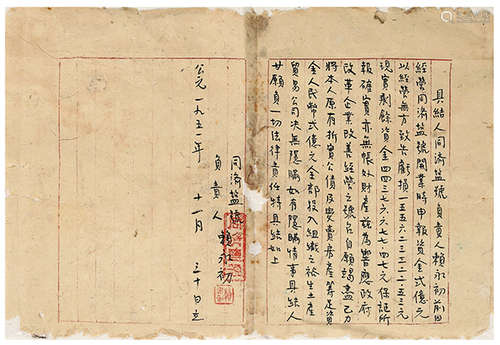 具結人同濟盐號負責人賴永初前回
經營同濟盐號開業時申報資金弍億元
以經營無方致失虧損一五五六二三三二·五三元
現實剩餘資金四四三七六六七七·四七元保証所
報確實亦無帳外財產茲為響應政府
改革企業改善經營之號召自願竭盡己力
將本人原有折實公債及變賣房產籌足資
金人民幣弍億元全部投入組織之裕生土產
貿易公司决無隱瞞如有隱瞞情事具結人
甘願負一切法律責任特具結如上
同濟盐號
負責人 賴永初
公元一九五一年 十一月 三十日立